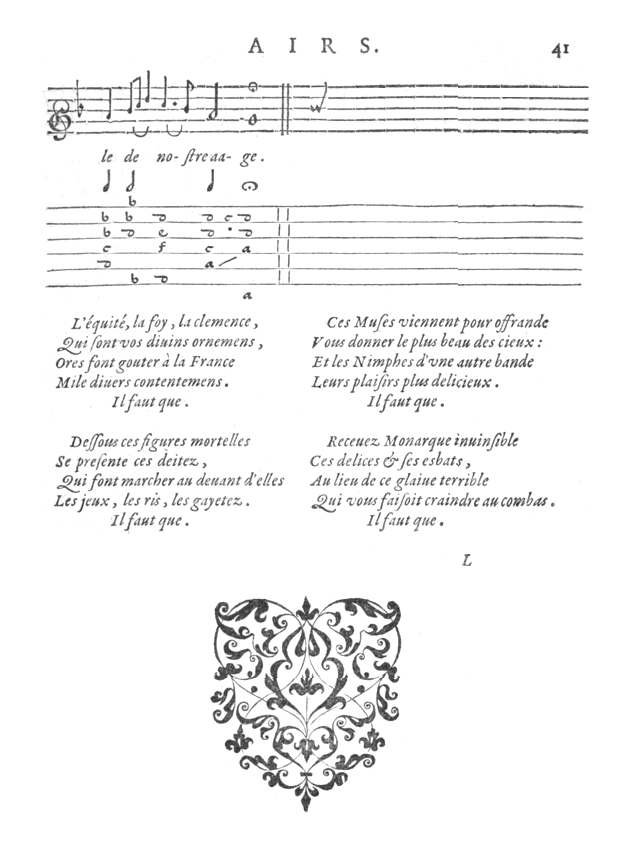 A I R S.
41
le de no- ſtre aa- ge.
b
b b d d c d
b d e d . d
c f c a
d a
b d
a
L'équité, la foy, la clemence,
Qui ſont vos diuins ornemens,
Ores font gouter à la France
Mile diuers contentemens.
Il faut que.
Deſſous ces figures mortelles
Se preſente ces deitez,
Qui font marcher au deuant d'elles
Les jeux, les ris, les gayetez.
Il faut que.
Ces Muſes viennent pour offrande
Vous donner le plus beau des cieux :
Et les Nimphes d'vne autre bande
Leurs plaiſirs plus delicieux.
Il faut que.
Receuez Monarque inuinſible
Ces delices & ſes esbats,
Au lieu de ce glaiue terrible
Qui vous faiſoit craindre au combas.
Il faut que.
L